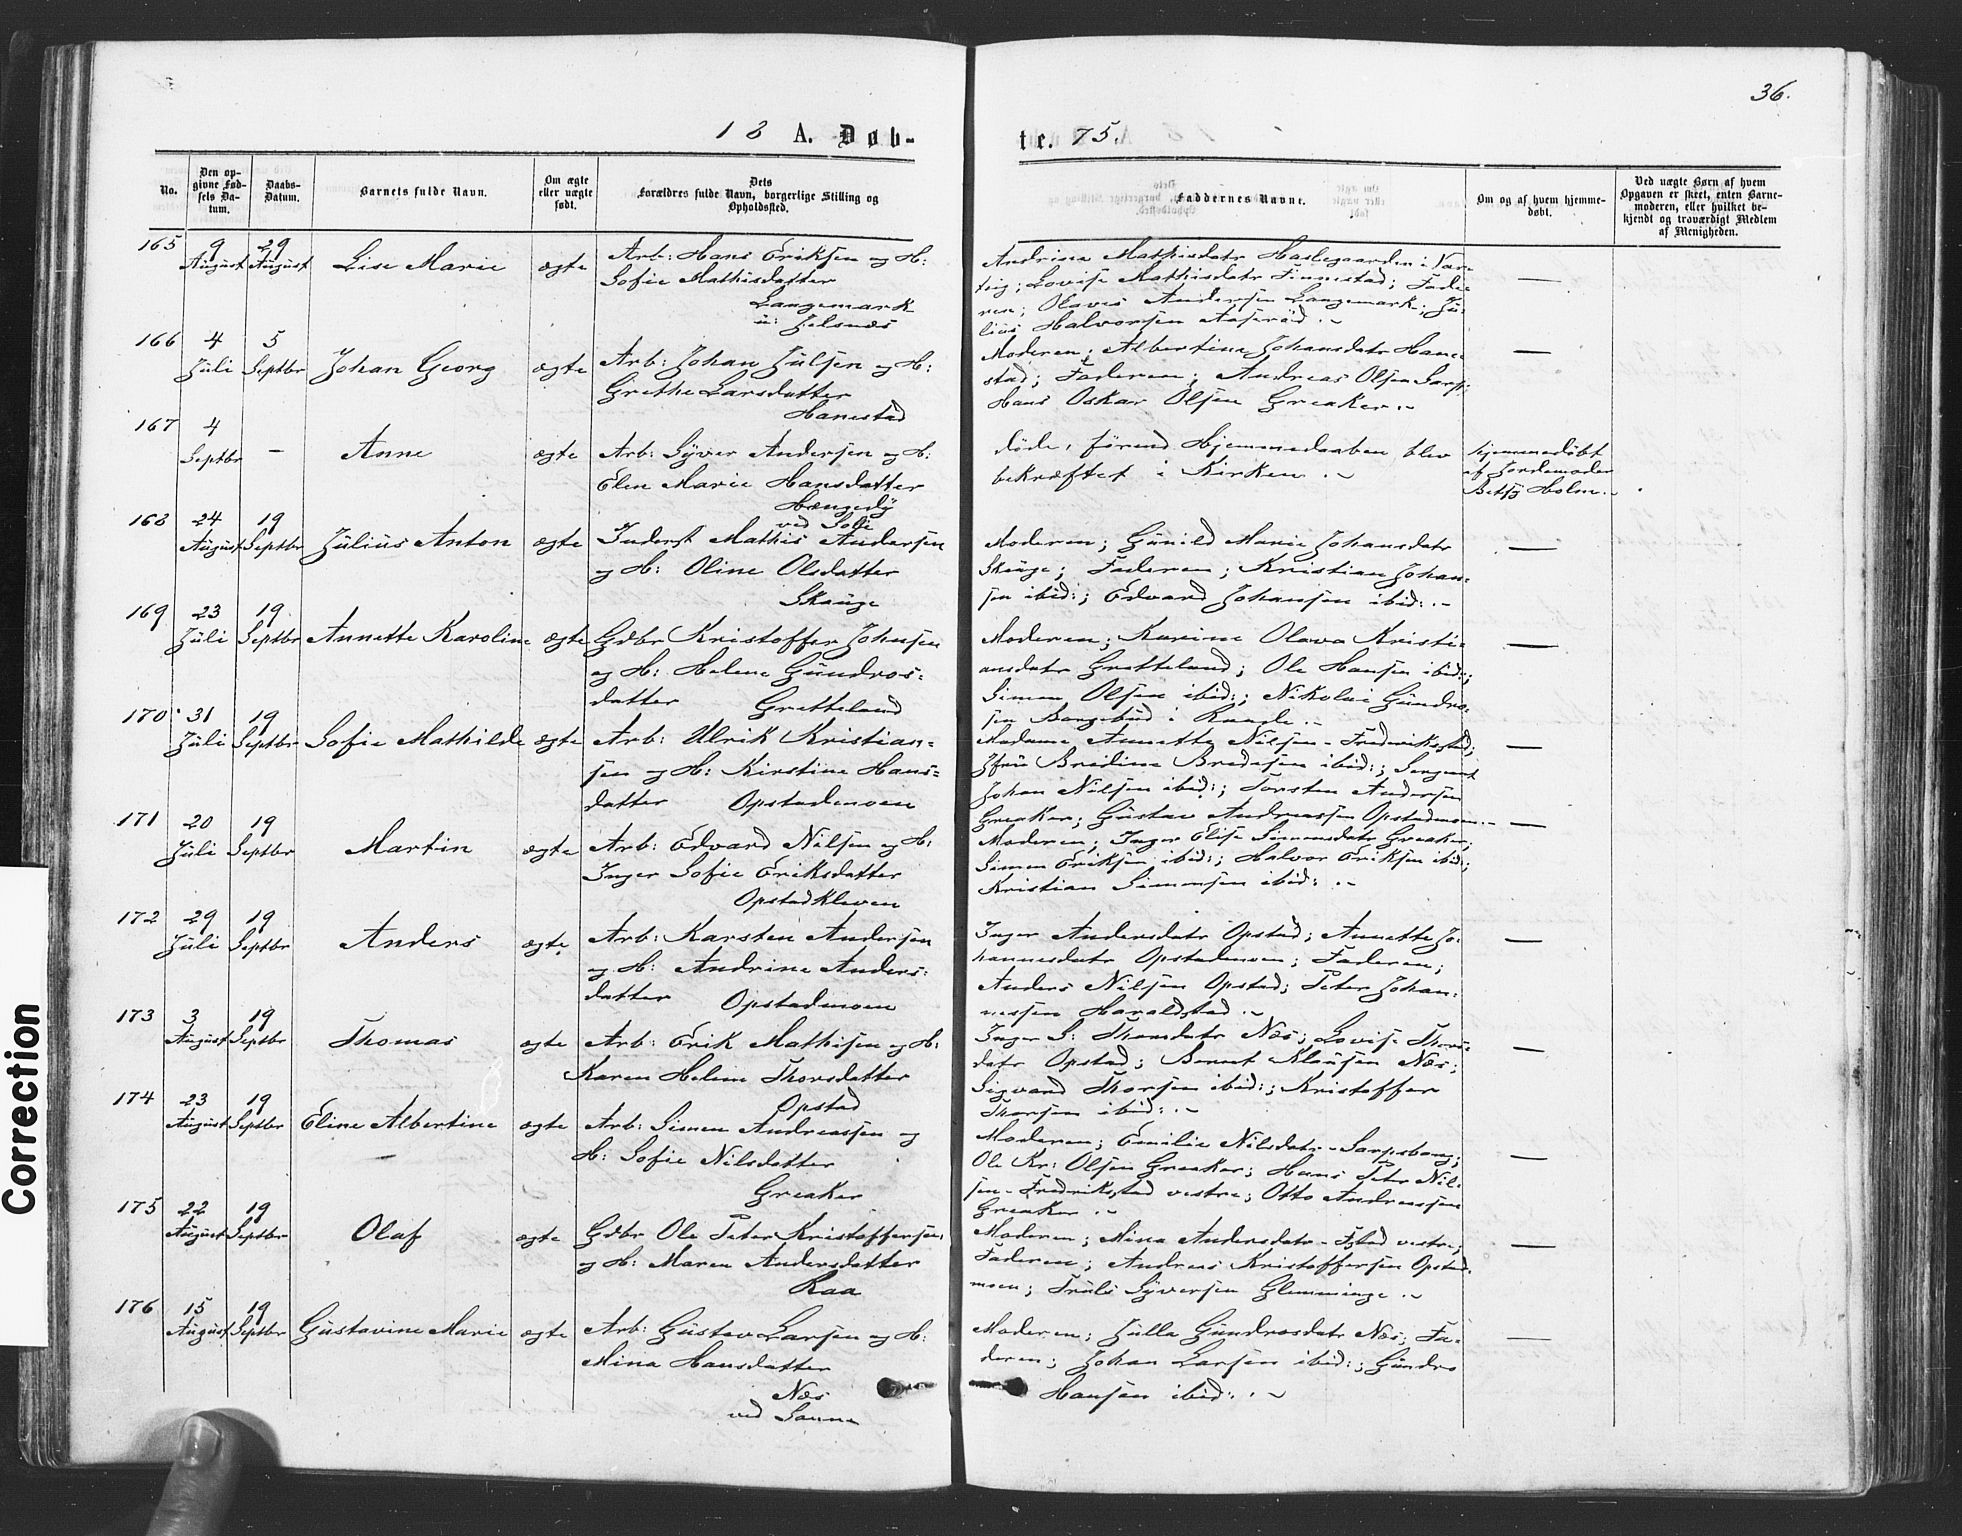 36.
18 A. Døb-
te. 75.
No.
Den op-
givne Fød-
sels Da-
tum.
Daabs-
Datum.
Barnets fulde Navn.
Om ægte
eller uægte
født.
Dets
Forældres fulde Navn, borgerlige Stilling og
Opholdsted.
Faddernes Navne.
Om og af hvem hjemme-
døbt.
Ved uægte Børn af hvem
Opgaven er skeet, enten Barne-
moderen, eller hvilket be-
kjendt og troværdigt Medlem
af Menigheden.
165 9 29
August August Lise Marie ægte
Arb: Hans Eriksen og H:
Sofie Mathisdatter
Langemark
u: Jelsnæs
Andrina Mathisdatr Haslegaarden i Var-
teig; Lovise Mathisdatr Finnestad; Fade-
ren; Olaves Andersen Langemark; Ju-
lius Halvorsen
—
166 4 5
Juli Septbr Johan Georg ægte
Arb: Johan Julsen og H:
Grethe Larsdatter
Hanestad
Moderen; Albertine Johansdatr Hane-
stad; Faderen; Andreas Olsen Sarp;
Hans Oskar Olsen Greaker.
—
167 4
Septbr - Anne ægte
Arb: Syver Andersen og H:
Elen Marie Hansdatter
ved Soli
døde, førend Hjemmedaaben blev
bekræftet i Kirken.
Hjemmedøbt
af Jordemoder
Betsy Holm.
168 24 19
August Septbr Julius Anton ægte
Inderst Mathis Andersen
og H: Oline Olsdatter
Skauge
Moderen; Gunild Marie Johansdatr
Skauge; Faderen; Kristian Johan-
sen ibid:; Edvard Johansen ibid:.
—
169 23 19
Juli Septbr Annette Karoline ægte
Gdbr Kristoffer Johnsen
og H: Helene Gundros-
datter Gretteland
Moderen; Karine Olava Kristi-
ansdatr Gretteland; Ole Hansen ibid:;
Simen Olsen ibid:; Nikolai Gundro-
sen i Raade.
—
170 31 19
Juli Septbr Sofie Mathilde ægte
Arb: Ulrik Kristian-
sen og H: Kirstine Hans-
datter Opstadmoen
Madame Annette Nilsen - Fredrikstad;
Jfru Bredine Bredesen ibid:; Sergeant
Johan Nilsen ibid:; Torsten Andersen
Greaker; Gustav Andreassen Opstadmoen.
—
171 20 19
Juli Septbr Martin ægte
Arb: Edvard Nilsen og H:
Inger Sofie Eriksdatter
Opstadkleven
Moderen; Inger Elise Simensdatr Greaker;
Simen Eriksen ibid:; Halvor Eriksen ibid;
Kristian Simensen ibid:.
—
172 29 19
Juli Septbr Anders ægte
Arb: Karsten Andersen
og H: Andrine Anders-
datter Opstadmoen
Inger Andersdatr Opstad; Annette Jo-
hannesdatr Opstadmoen; Faderen;
Anders Nilsen Opstad; Peter Johan-
nessen Haraldstad.
—
173 3 19
August Septbr Thomas ægte
Arb: Erik Mathisen og H:
Karen Helene Thorsdatter
Opstad
Inger S: Thorsdatr Næs; Lovise Thors-
datr Opstad; Bernt Klausen Næs;
Sigvard Thorsen ibid:; Kristoffer
Thorsen ibid:.
—
174 23 19
August Septbr Eline Albertine ægte
Arb: Simen Andreassen og
H: Sofie Nilsdatter
Greaker
Moderen; Emilie Nilsdatr - Sarpsborg;
Ole Kr: Olsen Greaker; Hans Peter Nil-
sen - Fredrikstad vestre; Otto Andreassen
Greaker.
—
175 22 19
August Septbr Olaf ægte
Gdbr Ole Peter Kristoffersen
og H: Maren Andersdatter
Raa
Moderen; Mina Andersdatr - Fstad vestre;
Faderen; Andreas Kristoffersen Opstad-
moen; Truls Syversen Glemminge.
—
176 15 19
August Septbr Gustavine Marie ægte
Arb: Gustav Larsen og H:
Mina Hansdatter
Næs
ved Sanne
Moderen; Julla Gundrosdatr Næs; Fa-
deren; Johan Larsen ibid:; Gundro
Hansen ibid:.
—
Correction